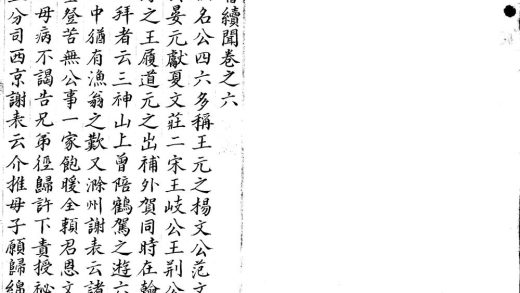 續聞卷之六
名公四六多稱王元之楊文公范文
晏元獻夏文莊二宋王岐公王荆公
之王履道元之出補外賀同時在翰
拜者云三神山上曾陪鶴駕之遊六
中猶有漁翁之歎又滁州謝表云諸
豋苦無公事一家飽暖全賴君恩文
母病不謁告兄弟徑歸許下責授祕
分司西京謝表云介推母子願歸綿